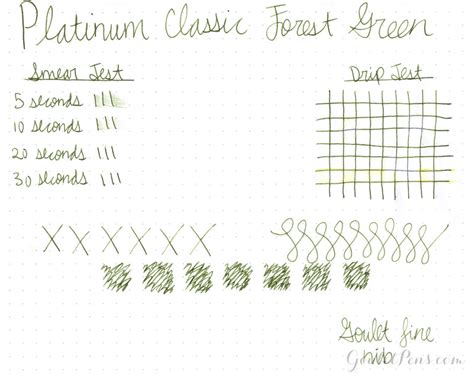 Platinum Classic Forest Green
Smear Test
Drip Test
5 seconds
10 seconds
20 seconds
30 seconds
Goulet fine
nib
GouletPens.com